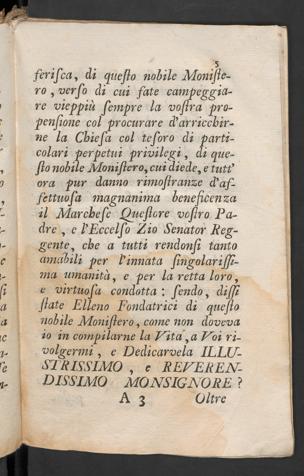 5
ferisca, di questo nobile Moniste-
ro, verso di cui fate campeggia-
re vieppiù sempre la vostra pro-
pensione col procurare d'arricchir-
ne la Chiesa col tesoro di parti-
colari perpetui privilegi, di que-
sto nobile Monistero, cui diede, e tutt'
ora pur danno rimostranze d'af-
fettuosa magnanima beneficenza
il Marchese Questore vostro Pa-
dre, e l'Eccelso Zio Senator Reg-
gente, che a tutti rendonsi tanto
amabili per l'innata singolarissi-
ma umanità, e per la retta loro,
e virtuosa condotta: sendo, dissi
state Elleno Fondatrici di questo
nobile Monistero, come non doveva
io in compilarne la Vita, a Voi ri-
volgermi, e Dedicarvela ILLU-
STRISSIMO, e REVEREN-
DISSIMO MONSIGNORE?
A 3 Oltre